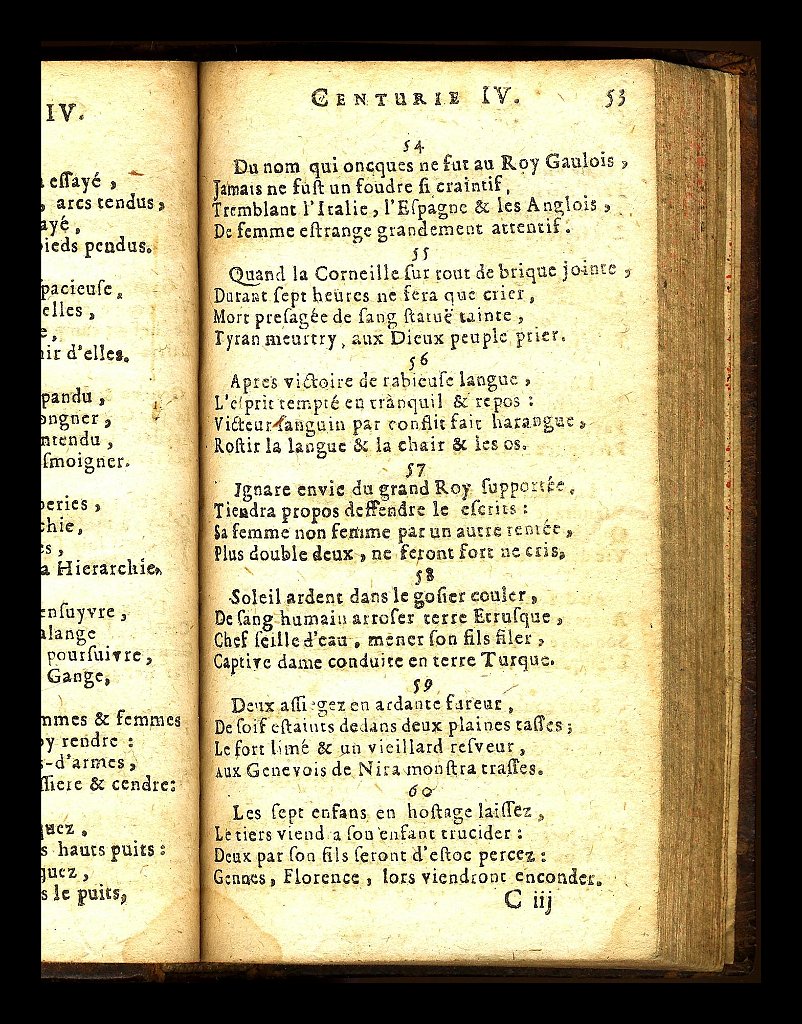 IV.
essayé ,
, arcs tendus ,
ayé ,
pieds pendus.
pacieuse ,
elles ,
e ,
nir d'elles.
pandu ,
ongner ,
ntendu ,
smoigner.
peries ,
chie,
es ,
a Hierarchie,
ensuyvre ,
alange
poursuivre ,
Gange,
mmes & femmes
oy rendre :
s-d'armes ,
ssiere & cendre:
quez ,
s hauts puits :
quez ,
s le puits,
CENTURIE IV. 53
54
Du nom qui oncques ne fut au Roy Gaulois ,
Jamais ne fust un foudre si craintif,
Tremblant l'Italie , l'Espagne & les Anglois ,
De femme estrange grandement attentif.
55
Quand la Corneille sur tout de brique jointe ,
Durant sept heures ne fera que crier ,
Mort presagée de sang statuë tainte ,
Tyran meurtry , aux Dieux peuple prier.
56
Apres victoire de rabieuse langue ,
L'esprit tempté en tranquil & repos :
Victeur sanguin par conflit fait harangue ,
Rostir la langue & la chair & les os.
57
Ignare envie du grand Roy supportée ,
Tiendra propos deffendre le escrits :
Sa femme non femme par un autre tentée ,
Plus double deux , ne feront fort ne cris,
58
Soleil ardent dans le gosier couler ,
De sang humain arroser terre Etrusque ,
Chef seille d'eau , mener son fils filer ,
Captive dame conduite en terre Turque.
59
Deux assiegez en ardante fureur ,
De soif estaints dedans deux plaines tasses ;
Le fort limé & un vieillard resveur ,
aux Genevois de Nira monstra trasses.
60
Les sept enfans en hostage laissez ,
Le tiers viend a son enfant trucider :
Deux par son fils seront d'estoc percez :
Gennes , Florence , lors viendront enconder.
C iij